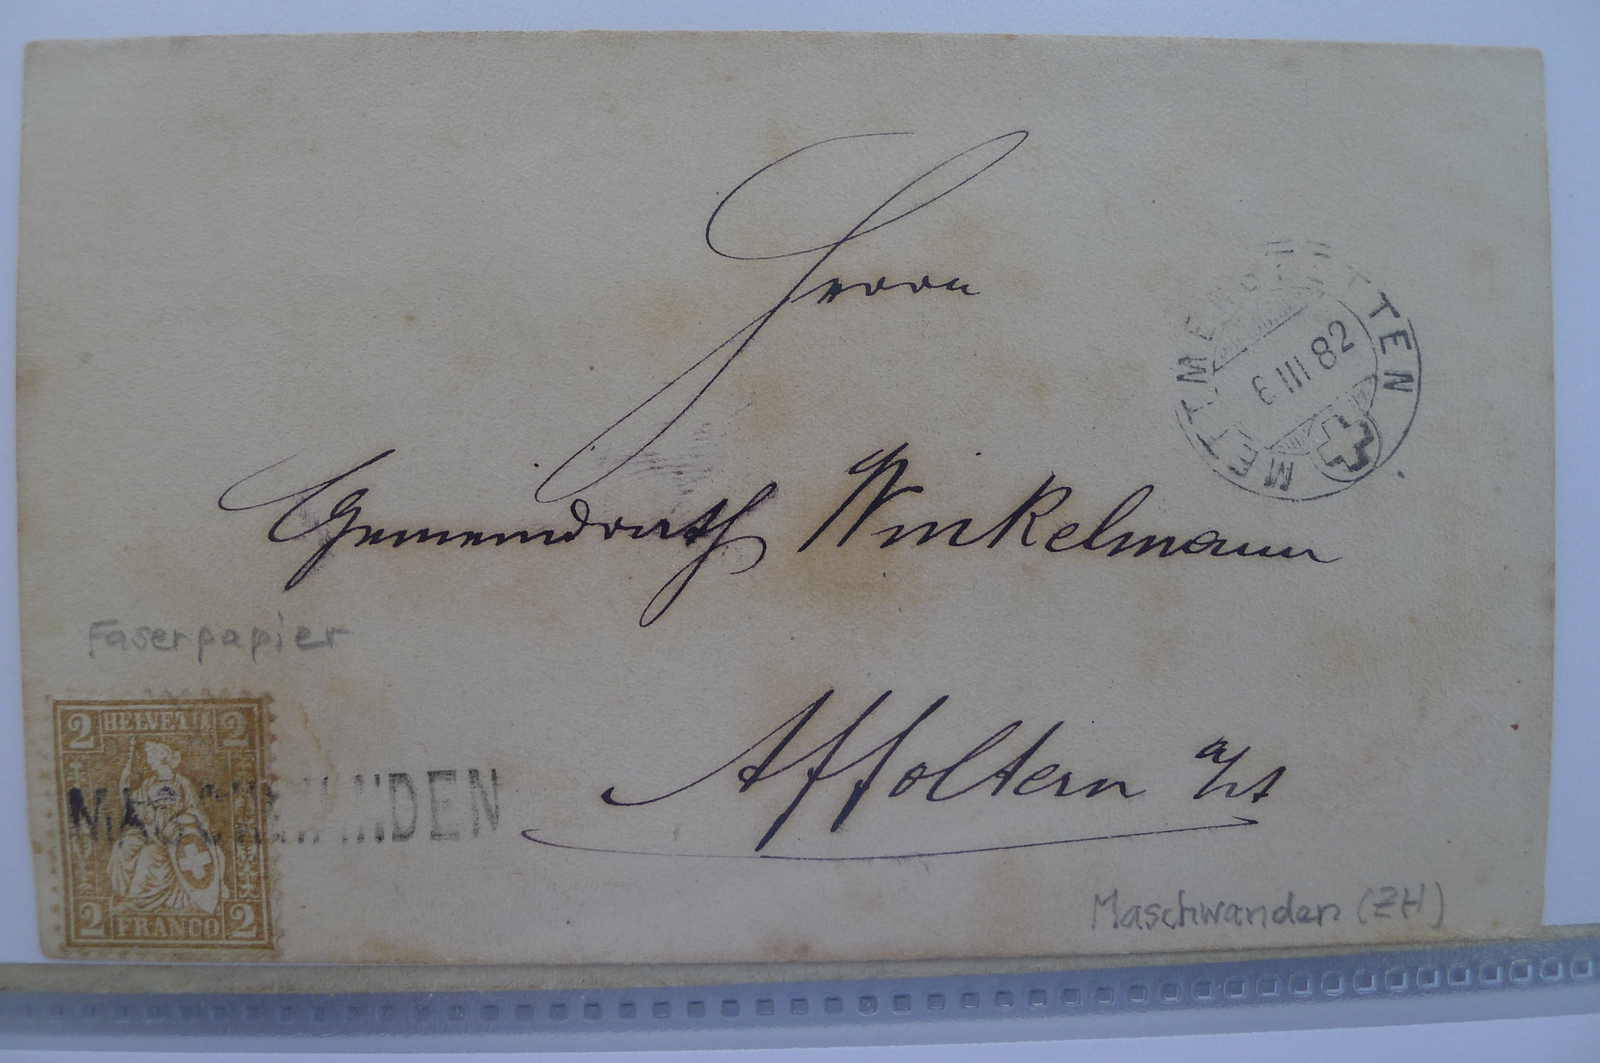 Herrn
METTMENSTETTEN
6 III 82
Gemeindrath Winkelmann
Faserpapier
2 HELVETIA 2
MASCHWANDEN
Affoltern a/A
2 FRANCO 2
Maschwanden (ZH)